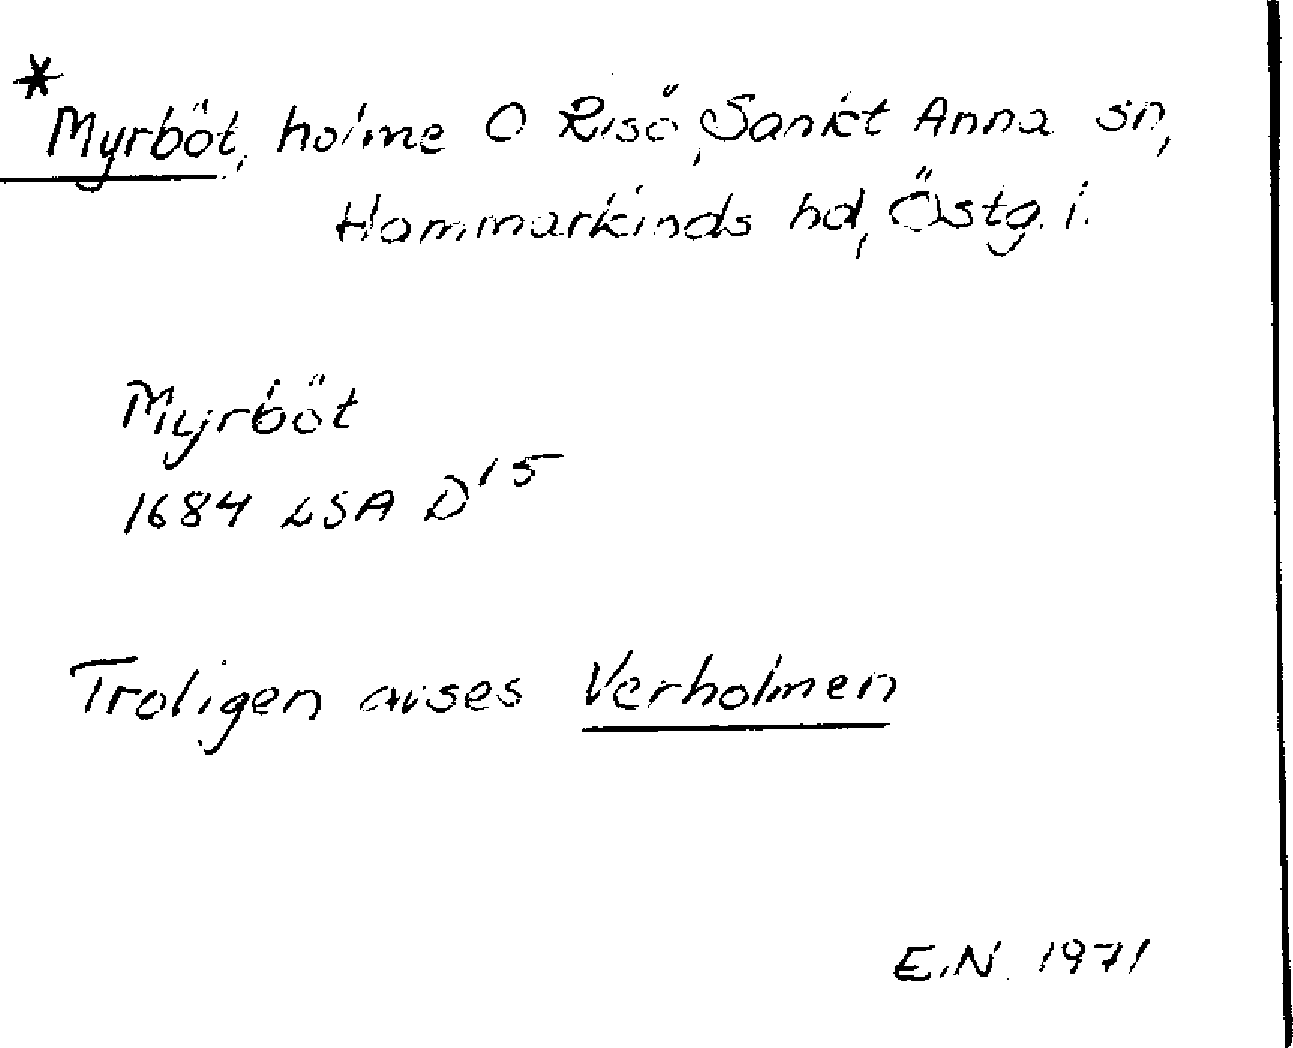 *Myrböt, holme O Risö, Sankt Anna sn,
Hammarkinds hd, Östg. l.
Myrböt
1684 LSA D15
Troligen avses Verholmen
E.N. 1971